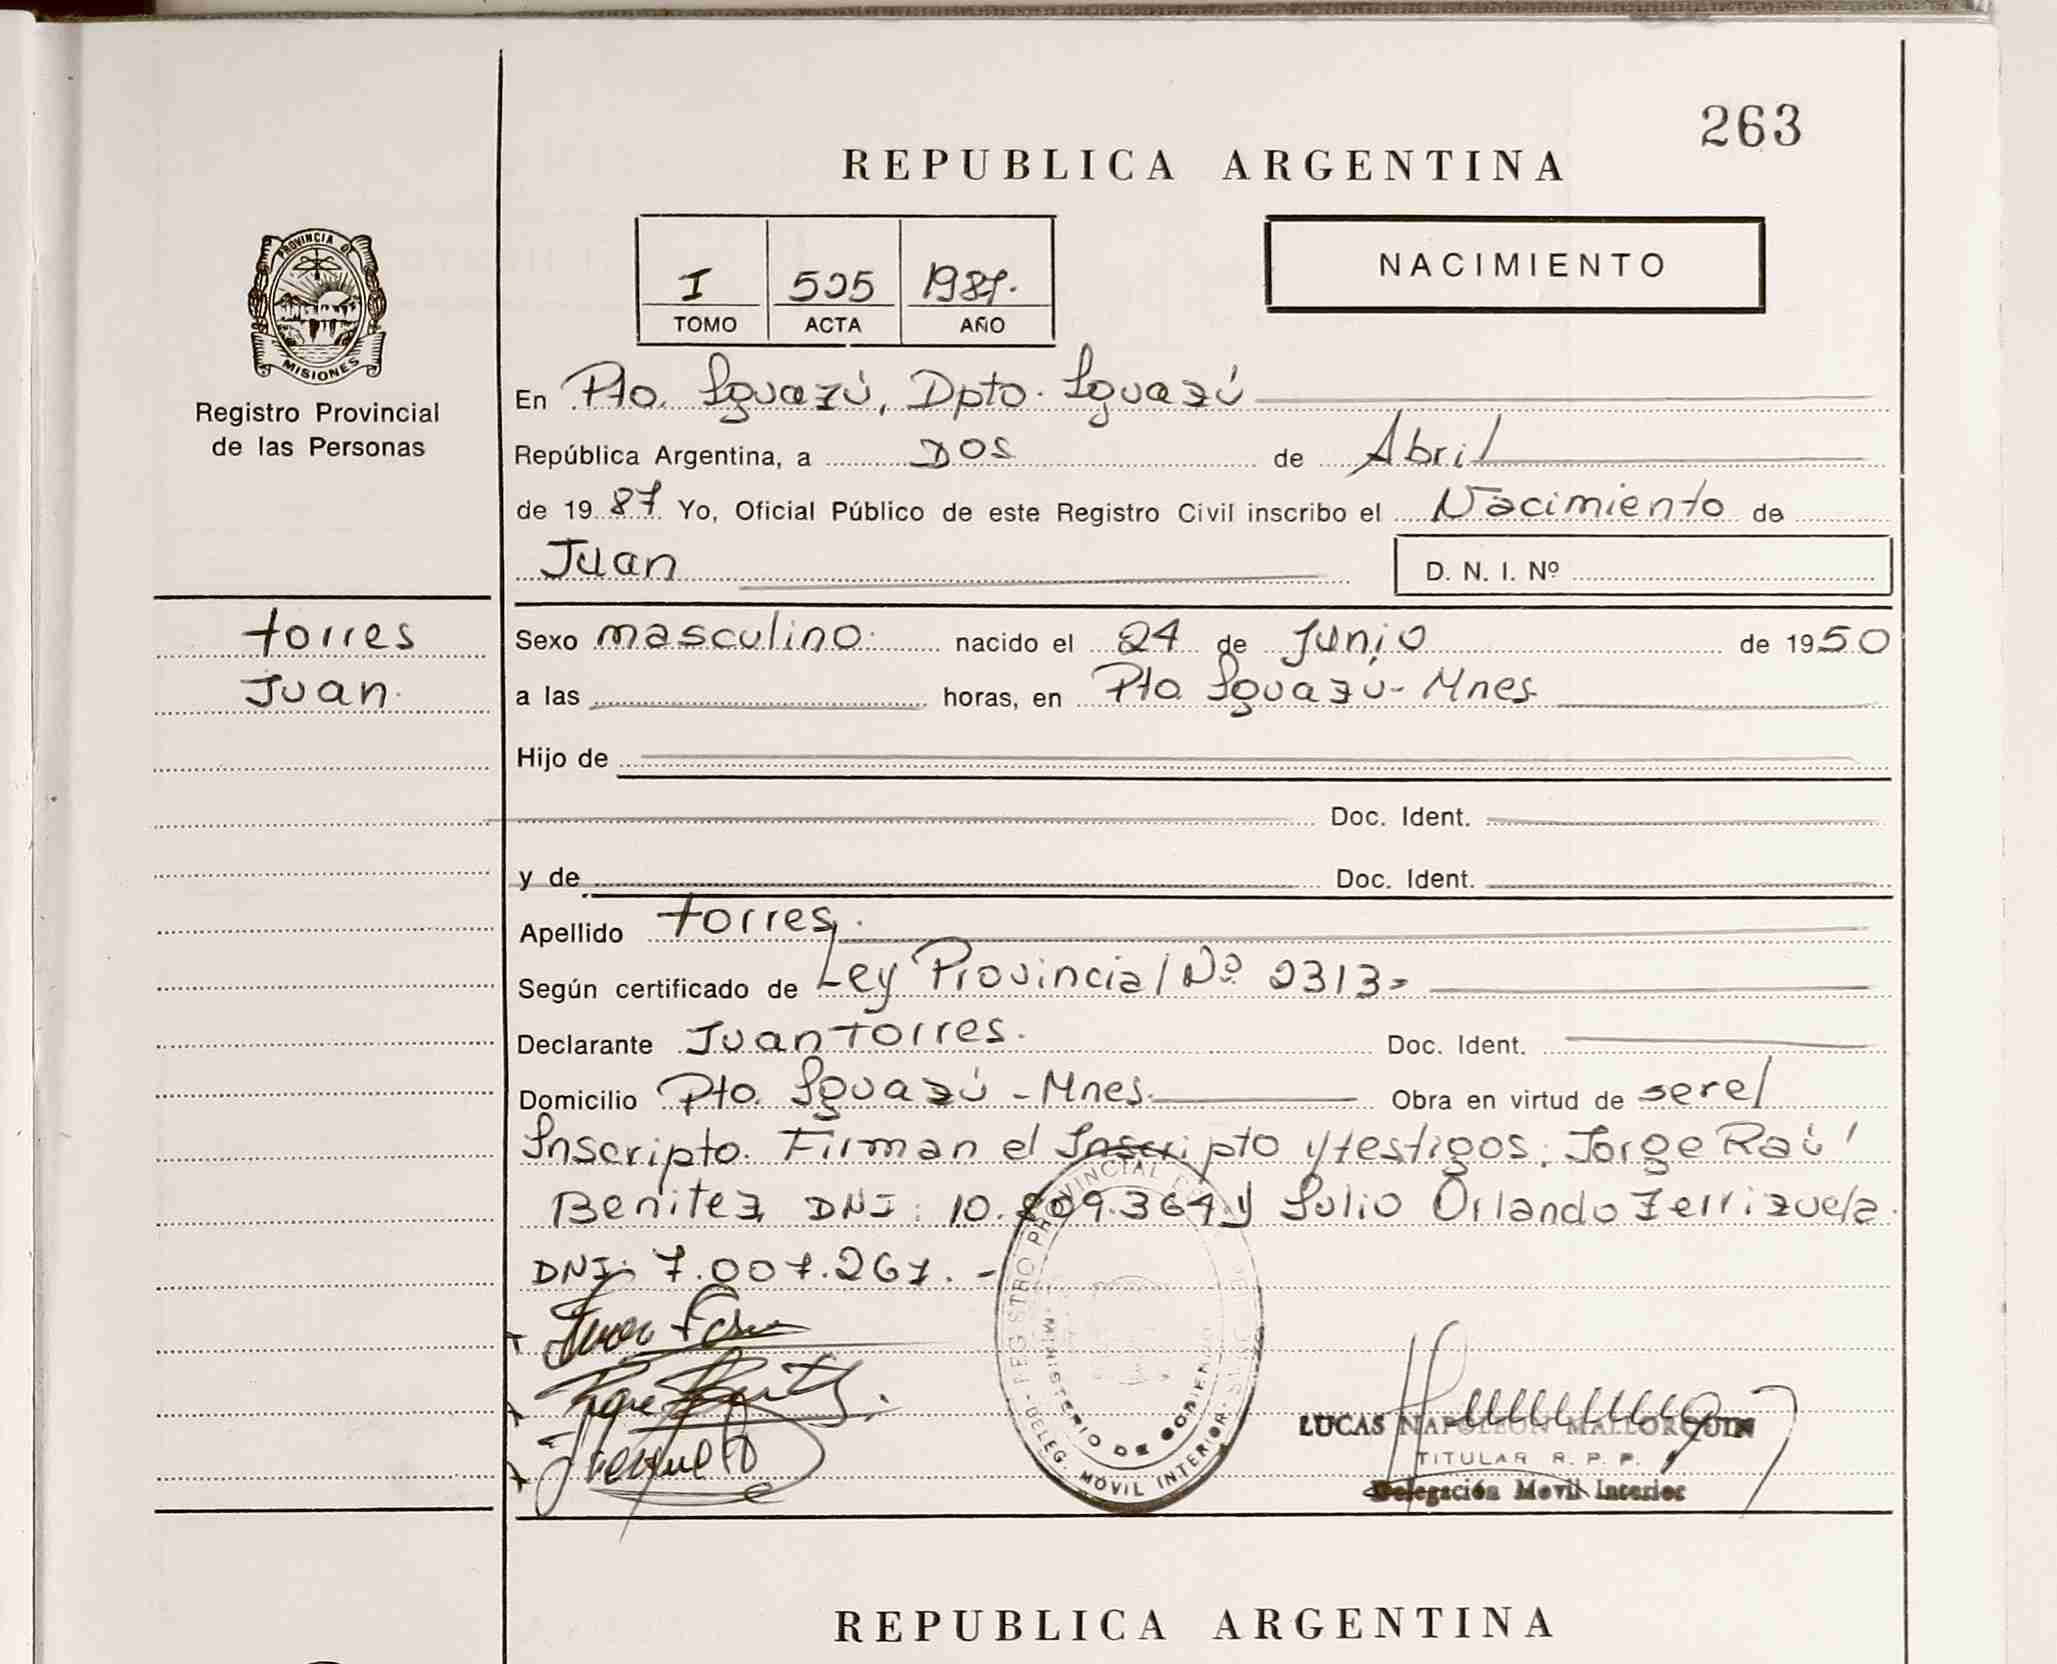 263
REPUBLICA ARGENTINA
PROVINCIA DE
MISIONES
Registro Provincial
de las Personas
I 505 1987.
TOMO ACTA AÑO
NACIMIENTO
En Pto. Iguazú, Dpto. Iguazú
República Argentina, a DOS de Abril
de 1987 Yo, Oficial Público de este Registro Civil inscribo el Nacimiento de
Juan D. N. I. Nº
Torres
Juan.
Sexo masculino. nacido el 24 de Junio de 1950
a las horas, en Pto. Iguazú - Mnes.
Hijo de
Doc. Ident.
y de Doc. Ident.
Apellido Torres.
Según certificado de Ley Provincial Nº 2313-
Declarante Juan Torres. Doc. Ident.
Domicilio Pto. Iguazú - Mnes. Obra en virtud de ser el
Inscripto. Firman el Inscripto y testigos: Jorge Raúl
Benitez DNI: 10.809.364 y Julio Orlando Zerrizuela.
DNI: 7.007.267. -
REGISTRO PROVINCIAL
MINISTERIO DE GOBIERNO
DELEG. MOVIL INTERIOR
LUCAS NAPOLEON MALLORQUIN
TITULAR R. P. P.
Delegación Movil Interior
REPUBLICA ARGENTINA